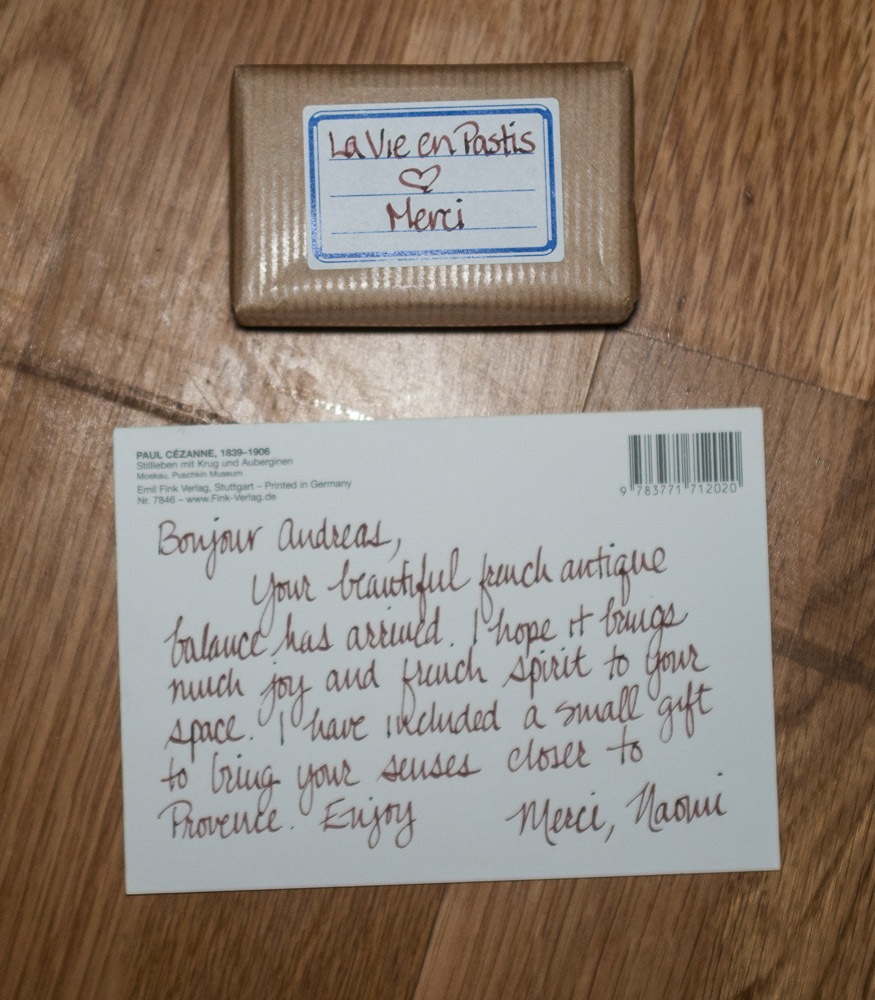 La Vie en Pastis
♡
Merci
PAUL CÉZANNE, 1839–1906
Stillleben mit Krug und Auberginen
Moskau, Puschkin Museum
Emil Fink Verlag, Stuttgart – Printed in Germany
Nr. 7846 – www.Fink-Verlag.de
9 783771 712020
Bonjour Andreas,
Your beautiful french antique
balance has arrived. I hope it brings
much joy and french spirit to your
space. I have included a small gift
to bring your senses closer to
Provence. Enjoy Merci, Naomi